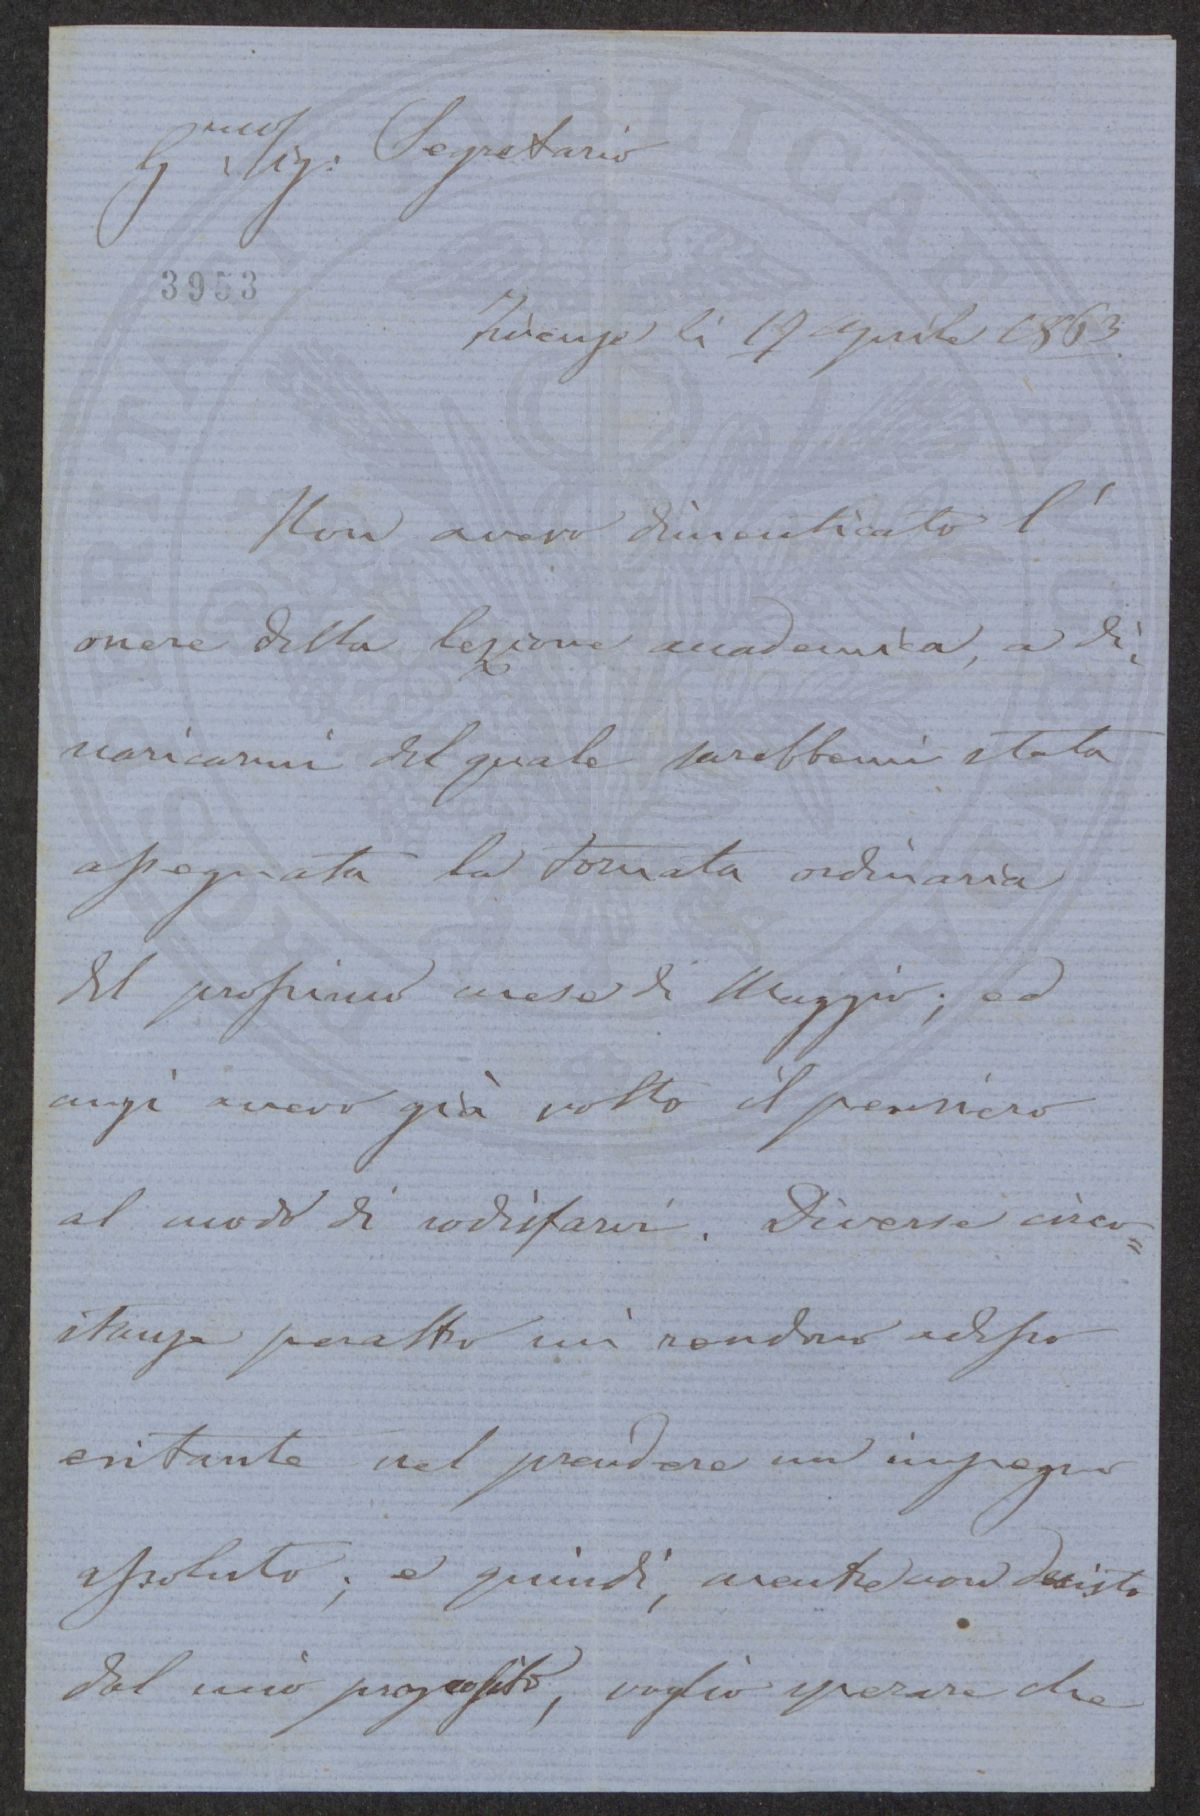 G.mo Sig: Segretario
3953
Firenze li 17 Aprile 1863
Non avevo dimenticato l'
onere della lezione accademica, a di,
scaricarmi del quale sarebbemi stata
assegnata la tornata ordinaria
del prossimo mese di Maggio; ed
anzi avevo già volto il pensiero
al modo di sodisfarvi. Diverse circo=
stanze peraltro mi rendono adesso
esitante nel prendere un impegno
assoluto; e quindi, mentre non desisto
dal mio proposito, voglio sperare che
PROSPERITATI PUBLICAE AUGENDAE